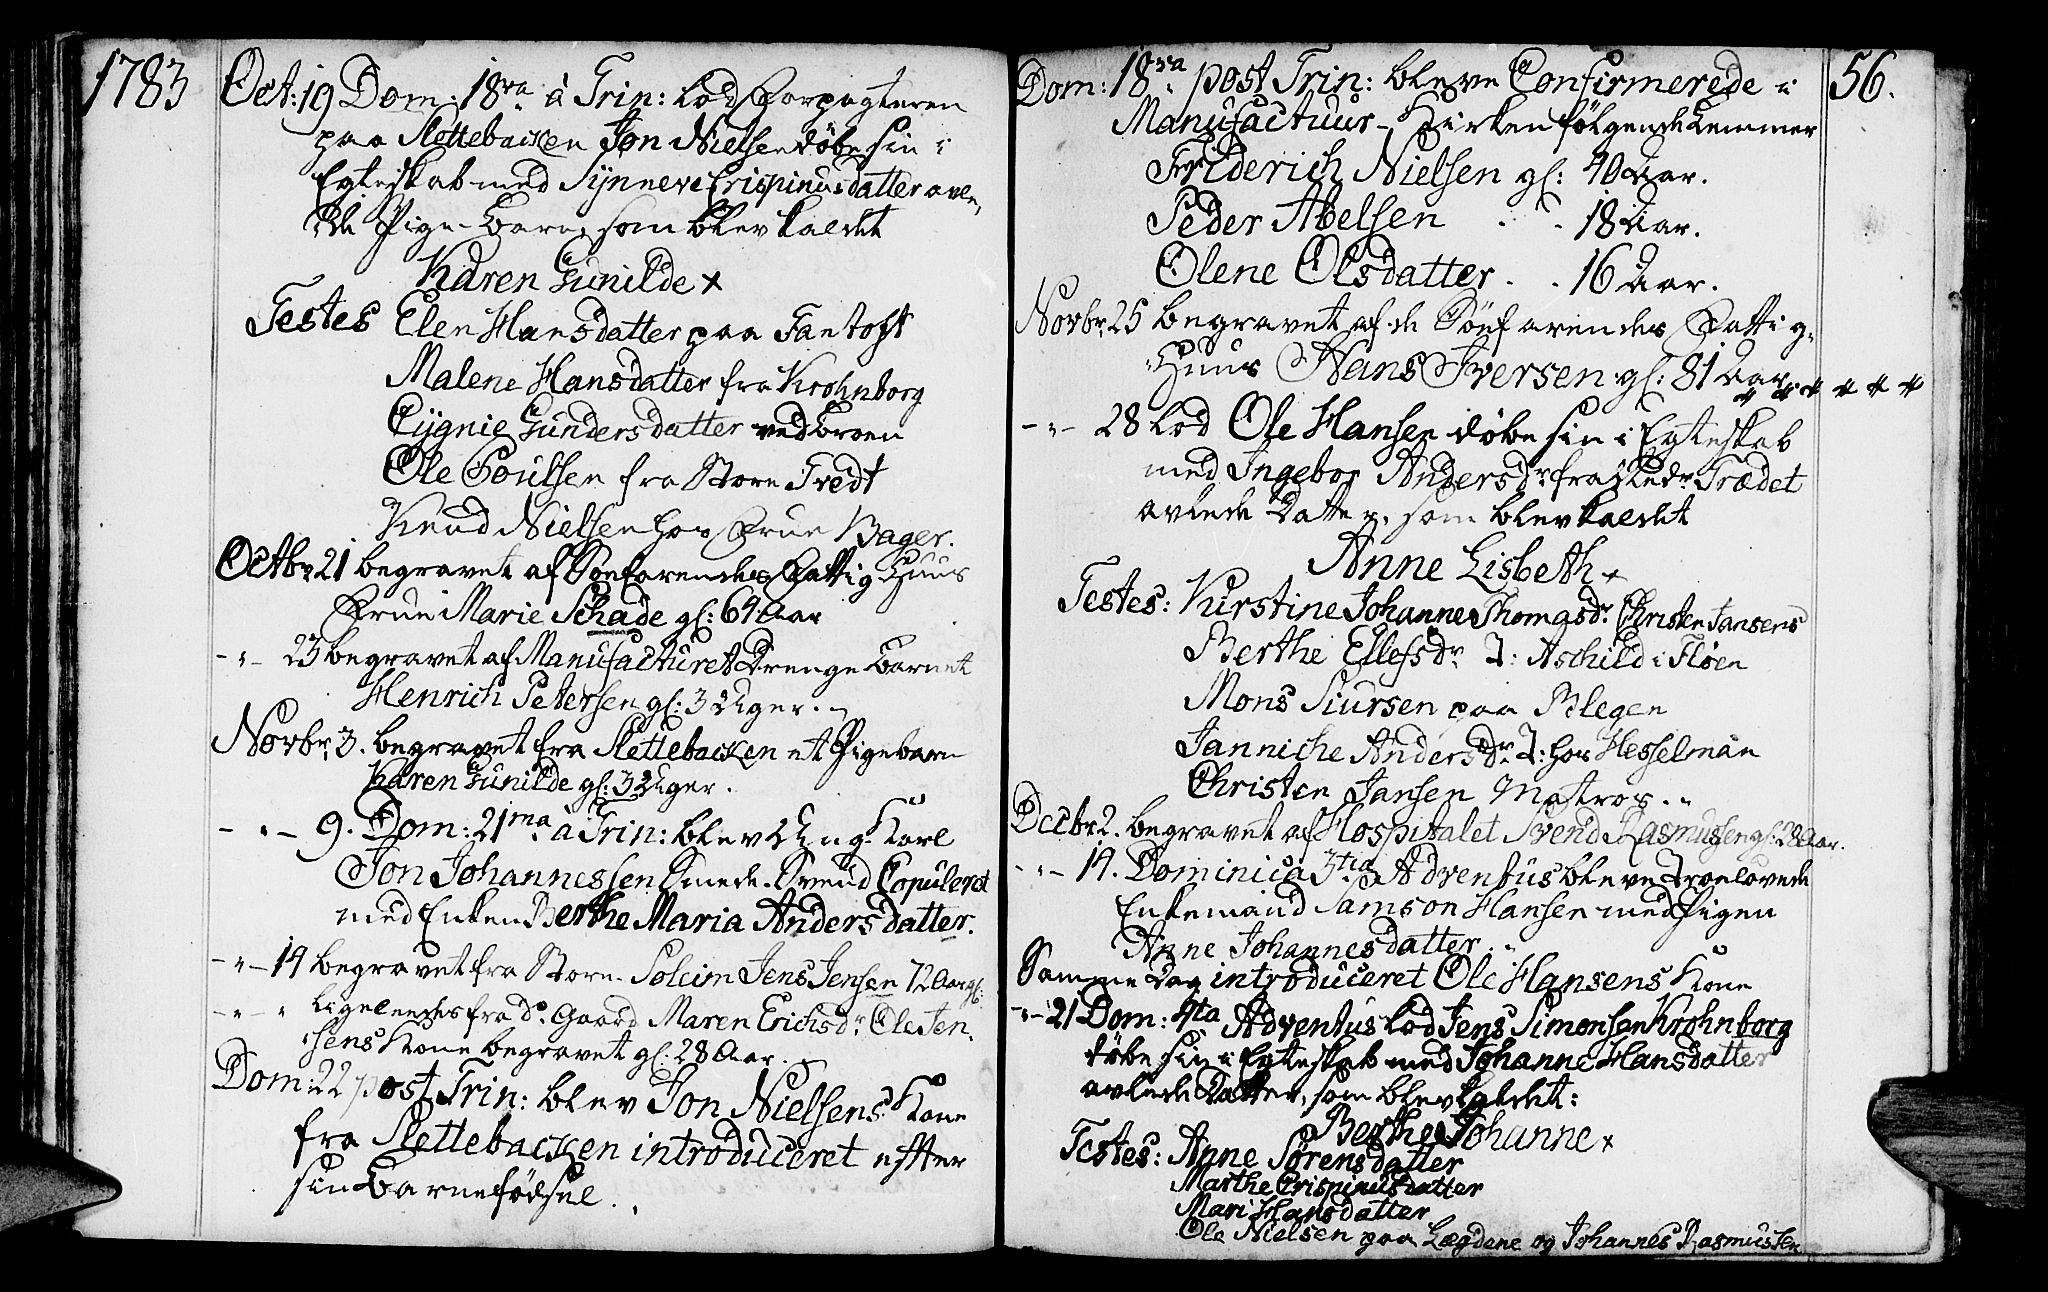 1783
Oct: 19 Dom: 18va à Trin: lod Forpagteren
paa Slettebacken Jon Nielsen döbe sin i
Egteskab med Synneve Crispinusdatter avle-
de Pige-Barn, som blev kaldet
Karen Gunilde x
Testes Elen Hansdatter paa Fantoft
Malene Hansdatter fra Krohnborg
Gundersdatter ved broen
Ole Poulsen fra Store Tvedt
Knud Nielsen hos Frue Bager.
Octbr 21 begravet af Söefarendes Fattig Huus
Frue Marie Schade gl: 64 Aar
- " - 23 begravet af Manufacturet Drenge Barnet
Henrich Petersen gl: 3 Uger.
Novbr. 3. begravet fra Slettebacken et Pigebarn
Karen Gunilde gl: 3 Uger.
- " - 9. Dom: 21ma à Trin: blev Ung-Karl
Jon Johannessen Smede-Svend Copuleret
med Enken Berthe Maria Andersdatter.
- " - 14 begravet fra Store-Soleim Jens Jensen 72 Aar gl:
- " - " Ligeledes fra do. Gaard Maren Erichsdr. Ole Jen-
sens Kone begravet gl. 28 Aar.
Dom: 22 post Trin: blev Jon Nielsens Kone
fra Slettebacken introduceret effter
sin Barnefödsel.
56.
Dom: 18va post Trin: bleve Confirmerede i
Manufactuur-Kirken fölgende Lemmer
Friderich Nielsen gl: 40 Aar.
Peder Abelsen . . 18 Aar.
Olene Olsdatter . . 16 Aar.
Novbr. 25 begravet af de Söefarendes Fattig-
Huus Hans Iversen gl: 81 Aar
- " - 28 lod Ole Hansen döbe sin i Egteskab
med Ingebor Andersdr fra Trædet
avlede Datter, som blev kaldet
Anne Lisbeth x
Testes: Kirstine Johanne Thomasdr. Christen Jansens
Berthe Ellefsdr T: Aschild i Fløen
Mons Siursen paa Blegen
Janniche Andersdr. T: hos Hesselman
Christen Jansen Matros.
Decbr 2. begravet af Hospitalet Svend Rasmussen gl: 28 Aar.
- " - 14. Dominica 3tia Adventus bleve Troelovede
Enkemand Samson Hansen med Pigen
Anne Johannesdatter.
Samme Dag introduceret Ole Hansens Kone
- " - 21 Dom: 4ta Adventus lod Jens Simonsen Krohnborg
döbe sin i Egteskab med Johanne Hansdatter
avlede Datter, som blev kaldet:
Berthe Johanne x
Testes: Anne Sørensdatter
Marthe Crispinusdatter
Mari Hansdatter
Ole Nielsen paa Lægdene og Johannes Rasmussen